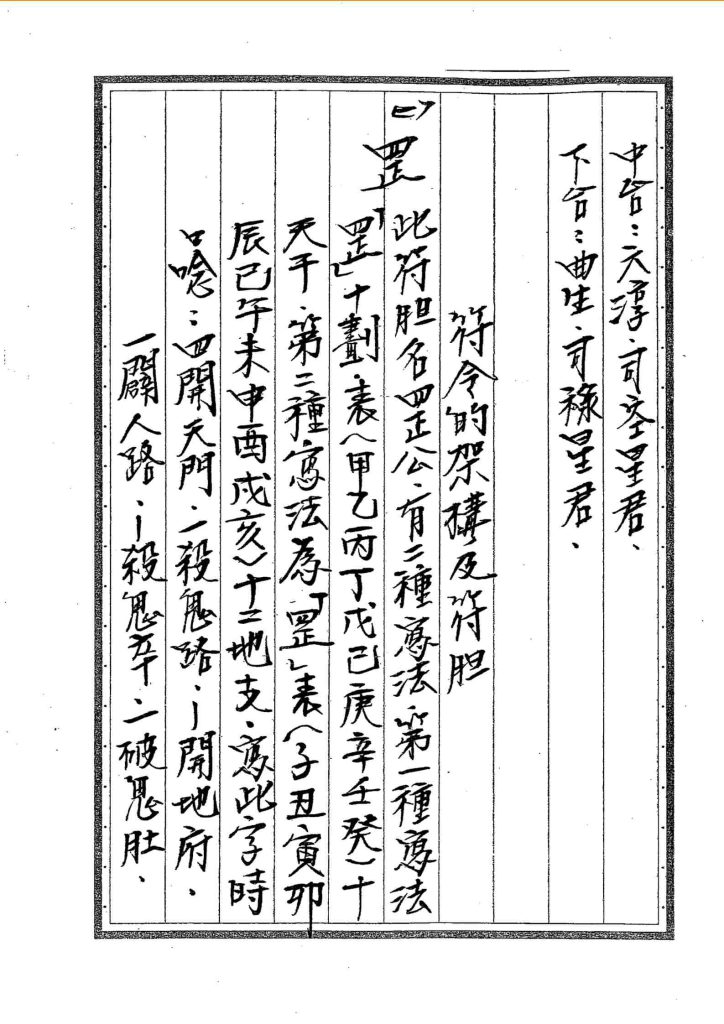 中台：六淳．司空星君、
下台：曲生．司祿星君、
符令的架構及符胆
(一)罡 此符胆名罡公．有二種寫法．第一種寫法
「罡」十劃．表(甲乙丙丁戊己庚辛壬癸)十
天干．第二種寫法為「罡」表(子丑寅卯
辰巳午未申酉戌亥)十二地支．寫此字時
口唸：四開天門．一殺鬼路．丨開地府．
一闢人路．丨殺鬼卒．一破鬼肚．